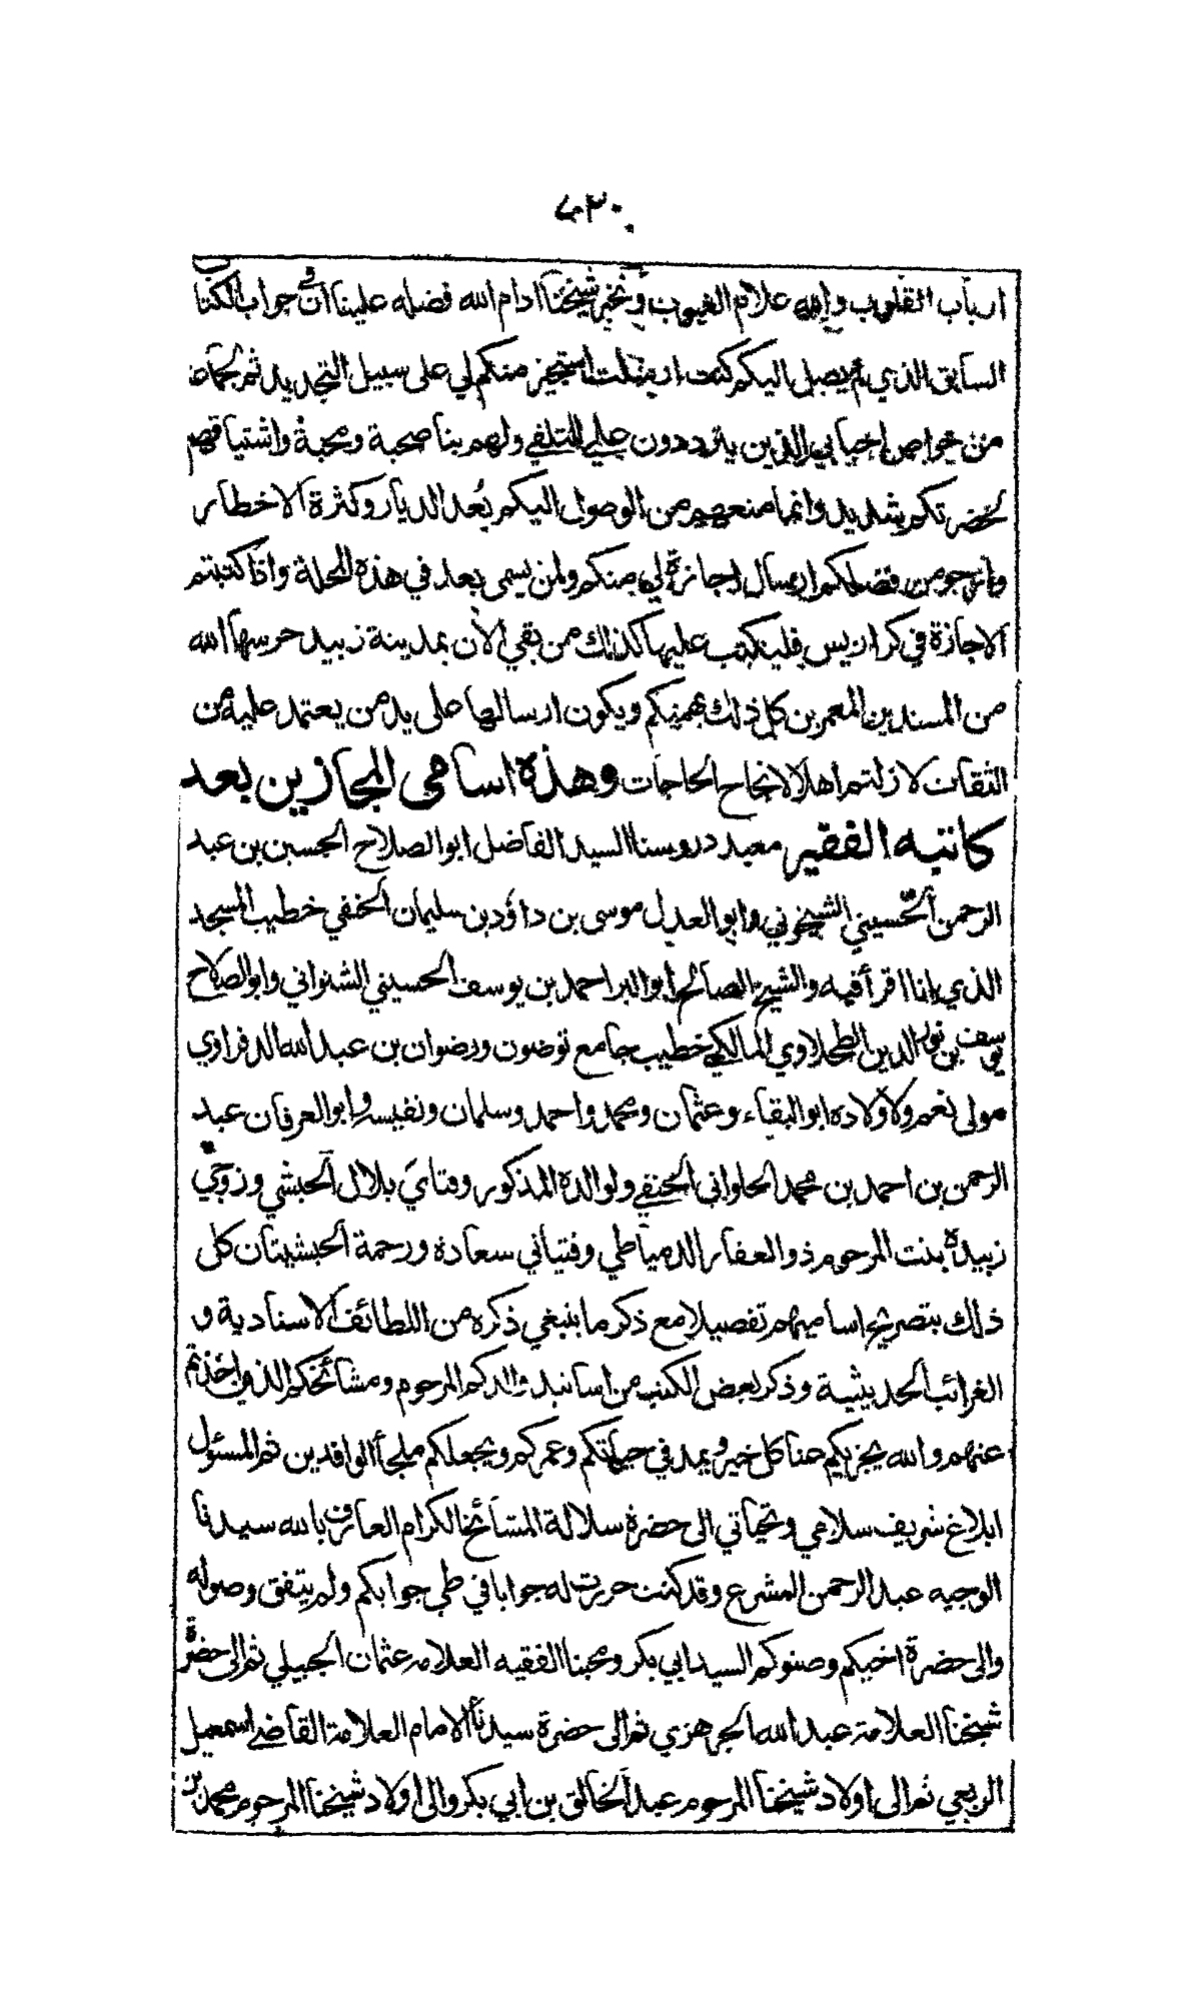 ٧٣٠
ارباب القلوب والله علام الغيوب ونخبر شيخنا ادام الله فضله علينا ان في جواب الكتاب
السابق الذي لم يصل اليكم كنت ارسلت استجيز منكم لي على سبيل التجديد ثم لجماعة
من خواص احبابي الذين يترددون علي للتلقي ولهم بنا صحبة ومحبة واشتياقهم
لحضرتكم شديد وانما منعهم من الوصول اليكم بُعد الديار وكثرة الاخطار
وارجو من فضلكم ارسال اجازة لي منكم ولمن يسمى بعد في هذه المحلة واذا كتبتم
الاجازة في كراريس فليكتب عليها كذلك من بقي الأن بمدينة زبيد حرسها الله
من المسندين المعمرين كل ذلك بهمتكم ويكون ارسالها على يد من يعتمد عليه من
الثقات لازلتم اهلا لانجاح الحاجات وهذه اسامى المجازين بعد
كاتبه الفقير معيد دروسنا السيد الفاضل ابو الصلاح الحسين بن عبد
الرحمن الحسيني الشيخوني وابو العدل موسى بن داؤد بن سليمان الحنفي خطيب المسجد
الذي انا اقرأ فيه والشيخ الصالح ابو البر احمد بن يوسف الحسيني الشنواني وابو الصلاح
يوسف بن نور الدين الطحلاوي المالكي خطيب جامع قوصون ورضوان بن عبد الله الدفراوي
مولى نعم ولأولاده ابو البقاء وعثمان ومحمد واحمد وسلمان ونفيسه وابو العرفان عبد
الرحمن بن احمد بن محمد الحلواني الحنفي ولوالده المذكور وفتاي بلال الحبشي وزوجتي
زبيدة بنت المرحوم ذو الفقار الدمياطي وفتياتي سعادة ورحمة الحبشيتان كل
ذلك بتصريح اساميهم تفصيلا مع ذكر ما ينبغي ذكره من اللطائف الاسنادية و
الغرائب الحديثية وذكر بعض الكتب من اسانيد والدكم المرحوم ومشائخكم الذين اخذتم
عنهم والله يجزيكم عنا كل خير ويمد في حياتكم وعمركم ويجعلكم ملجأ الوافدين ثم المسئول
ابلاغ شريف سلامي وتحياتي الى حضرة سلالة المشائخ الكرام العارف بالله سيدنا
الوجيه عبد الرحمن المشرع وقد كنت حررت له جوابا في طي جوابكم ولم يتفق وصوله
والى حضرة اخيكم وصنوكم السيد ابي بكر ومحبنا الفقيه العلامه عثمان الجبيلي ثم الى حضرة
شيخنا العلامة عبد الله الجرهزي ثم الى حضرة سيدنا الامام العلامة القاضي اسمعيل
الربعي ثم الى اولاد شيخنا المرحوم عبد الخالق بن ابي بكر والى اولاد شيخنا المرحوم محمد بن